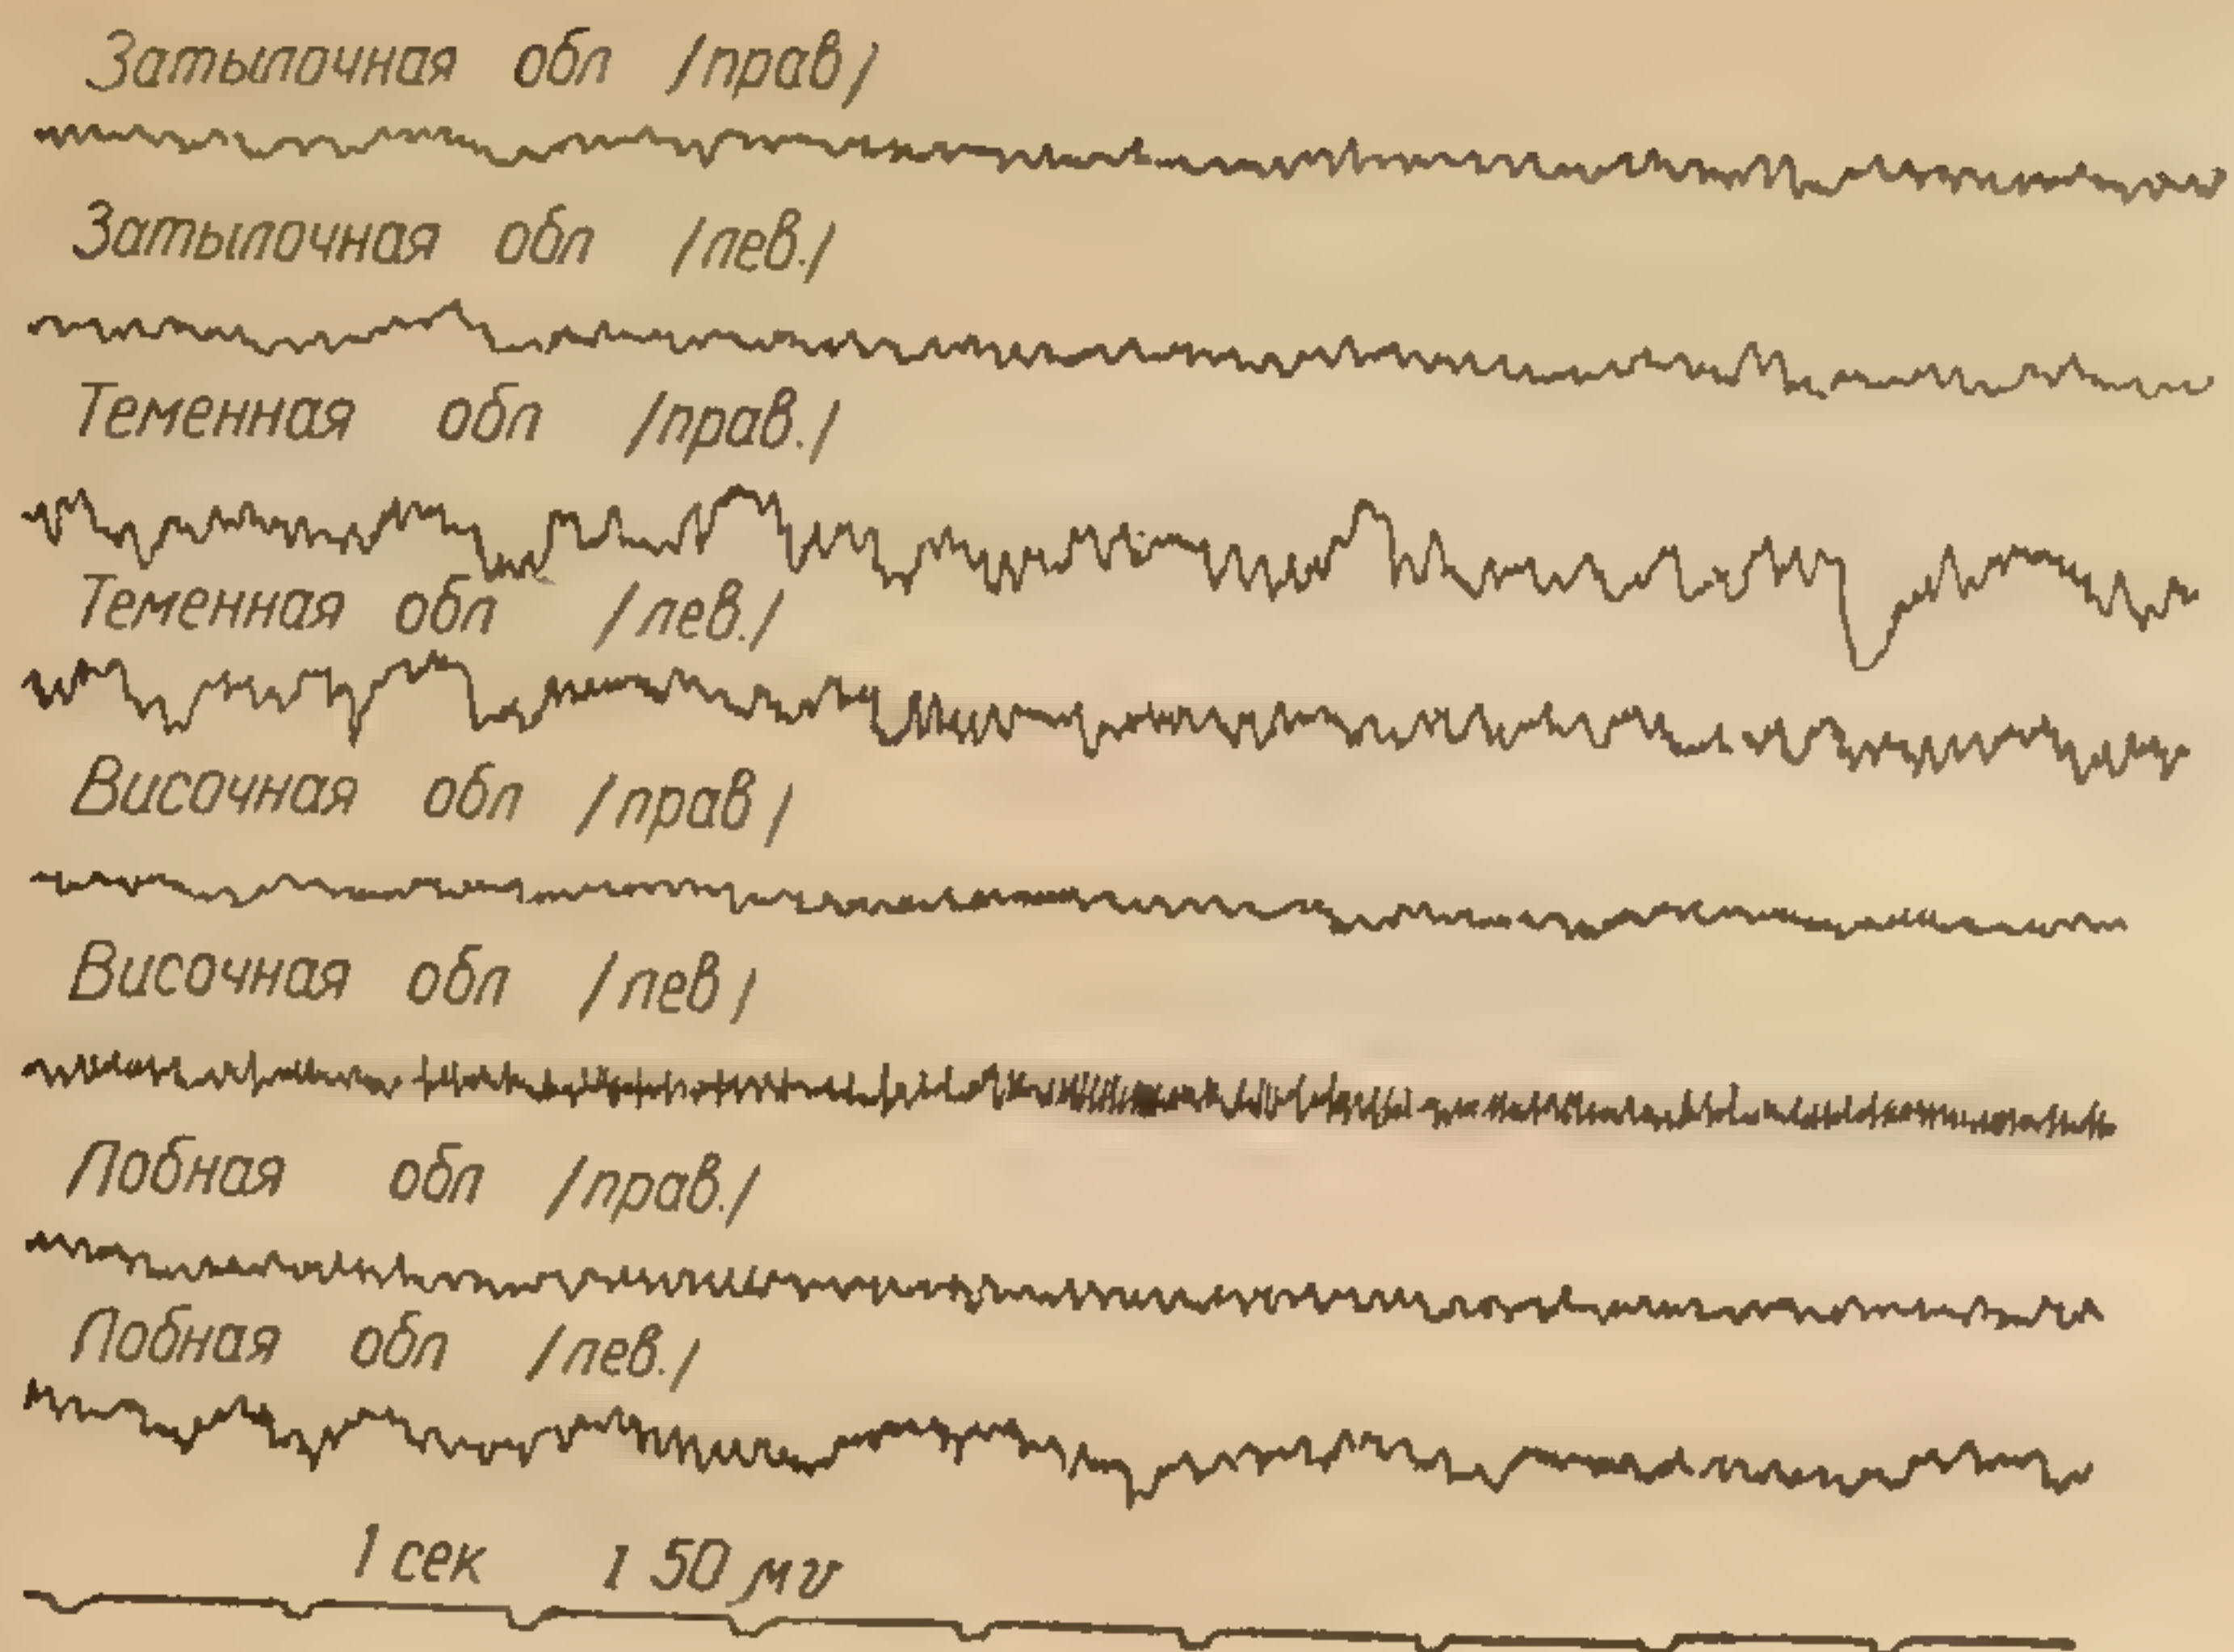 Затылочная обл /прав/
Затылочная обл /лев./
Теменная обл /прав./
Теменная обл /лев./
Височная обл /прав/
Височная обл /лев/
Лобная обл /прав./
Лобная обл /лев./
1 сек I 50 μv